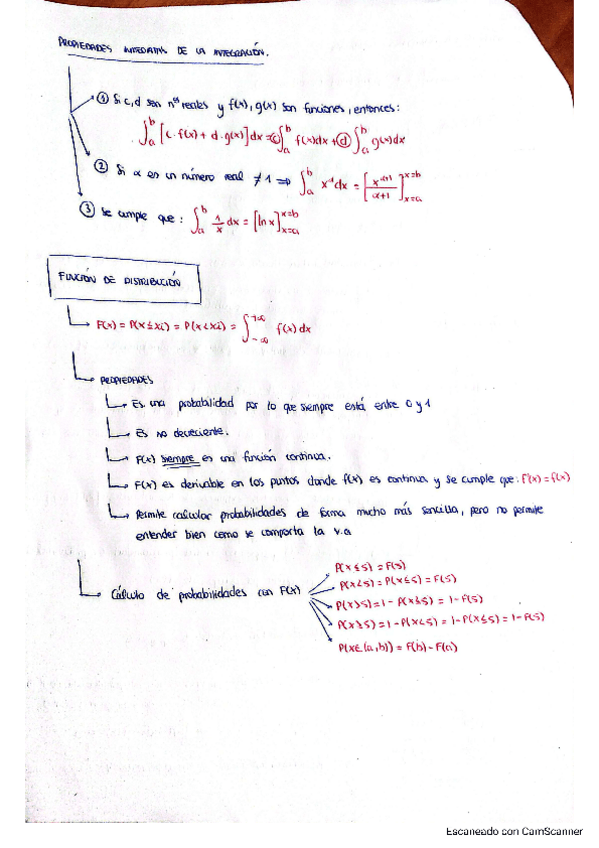 PROPIEDADES INMEDIATAS DE LA INTEGRACIÓN.
① Si c,d son nºs reales y f(x), g(x) son funciones, entonces:
∫_a^b [c·f(x) + d·g(x)] dx = c ∫_a^b f(x)dx + d ∫_a^b g(x)dx
② Si α es un número real ≠ 1 ⇒ ∫_a^b x^α dx = [x^(α+1)/(α+1)]_{x=a}^{x=b}
③ Se cumple que: ∫_a^b 1/x dx = [ln x]_{x=a}^{x=b}
FUNCIÓN DE DISTRIBUCIÓN
F(x) = P(X ≤ xi) = P(X < xi) = ∫_{-∞}^{+∞} f(x) dx
PROPIEDADES
Es una probabilidad por lo que siempre está entre 0 y 1
Es no decreciente.
F(x) siempre es una función continua.
F(x) es derivable en los puntos donde f(x) es continua y se cumple que: F'(x) = f(x)
Permite calcular probabilidades de forma mucho más sencilla, pero no permite
entender bien como se comporta la v.a
Cálculo de probabilidades con F(x)
P(X ≤ 5) = F(5)
P(X < 5) = P(X ≤ 5) = F(5)
P(X > 5) = 1 - P(X ≤ 5) = 1 - F(5)
P(X ≥ 5) = 1 - P(X < 5) = 1 - P(X ≤ 5) = 1 - F(5)
P(X ∈ (a,b)) = F(b) - F(a)
Escaneado con CamScanner